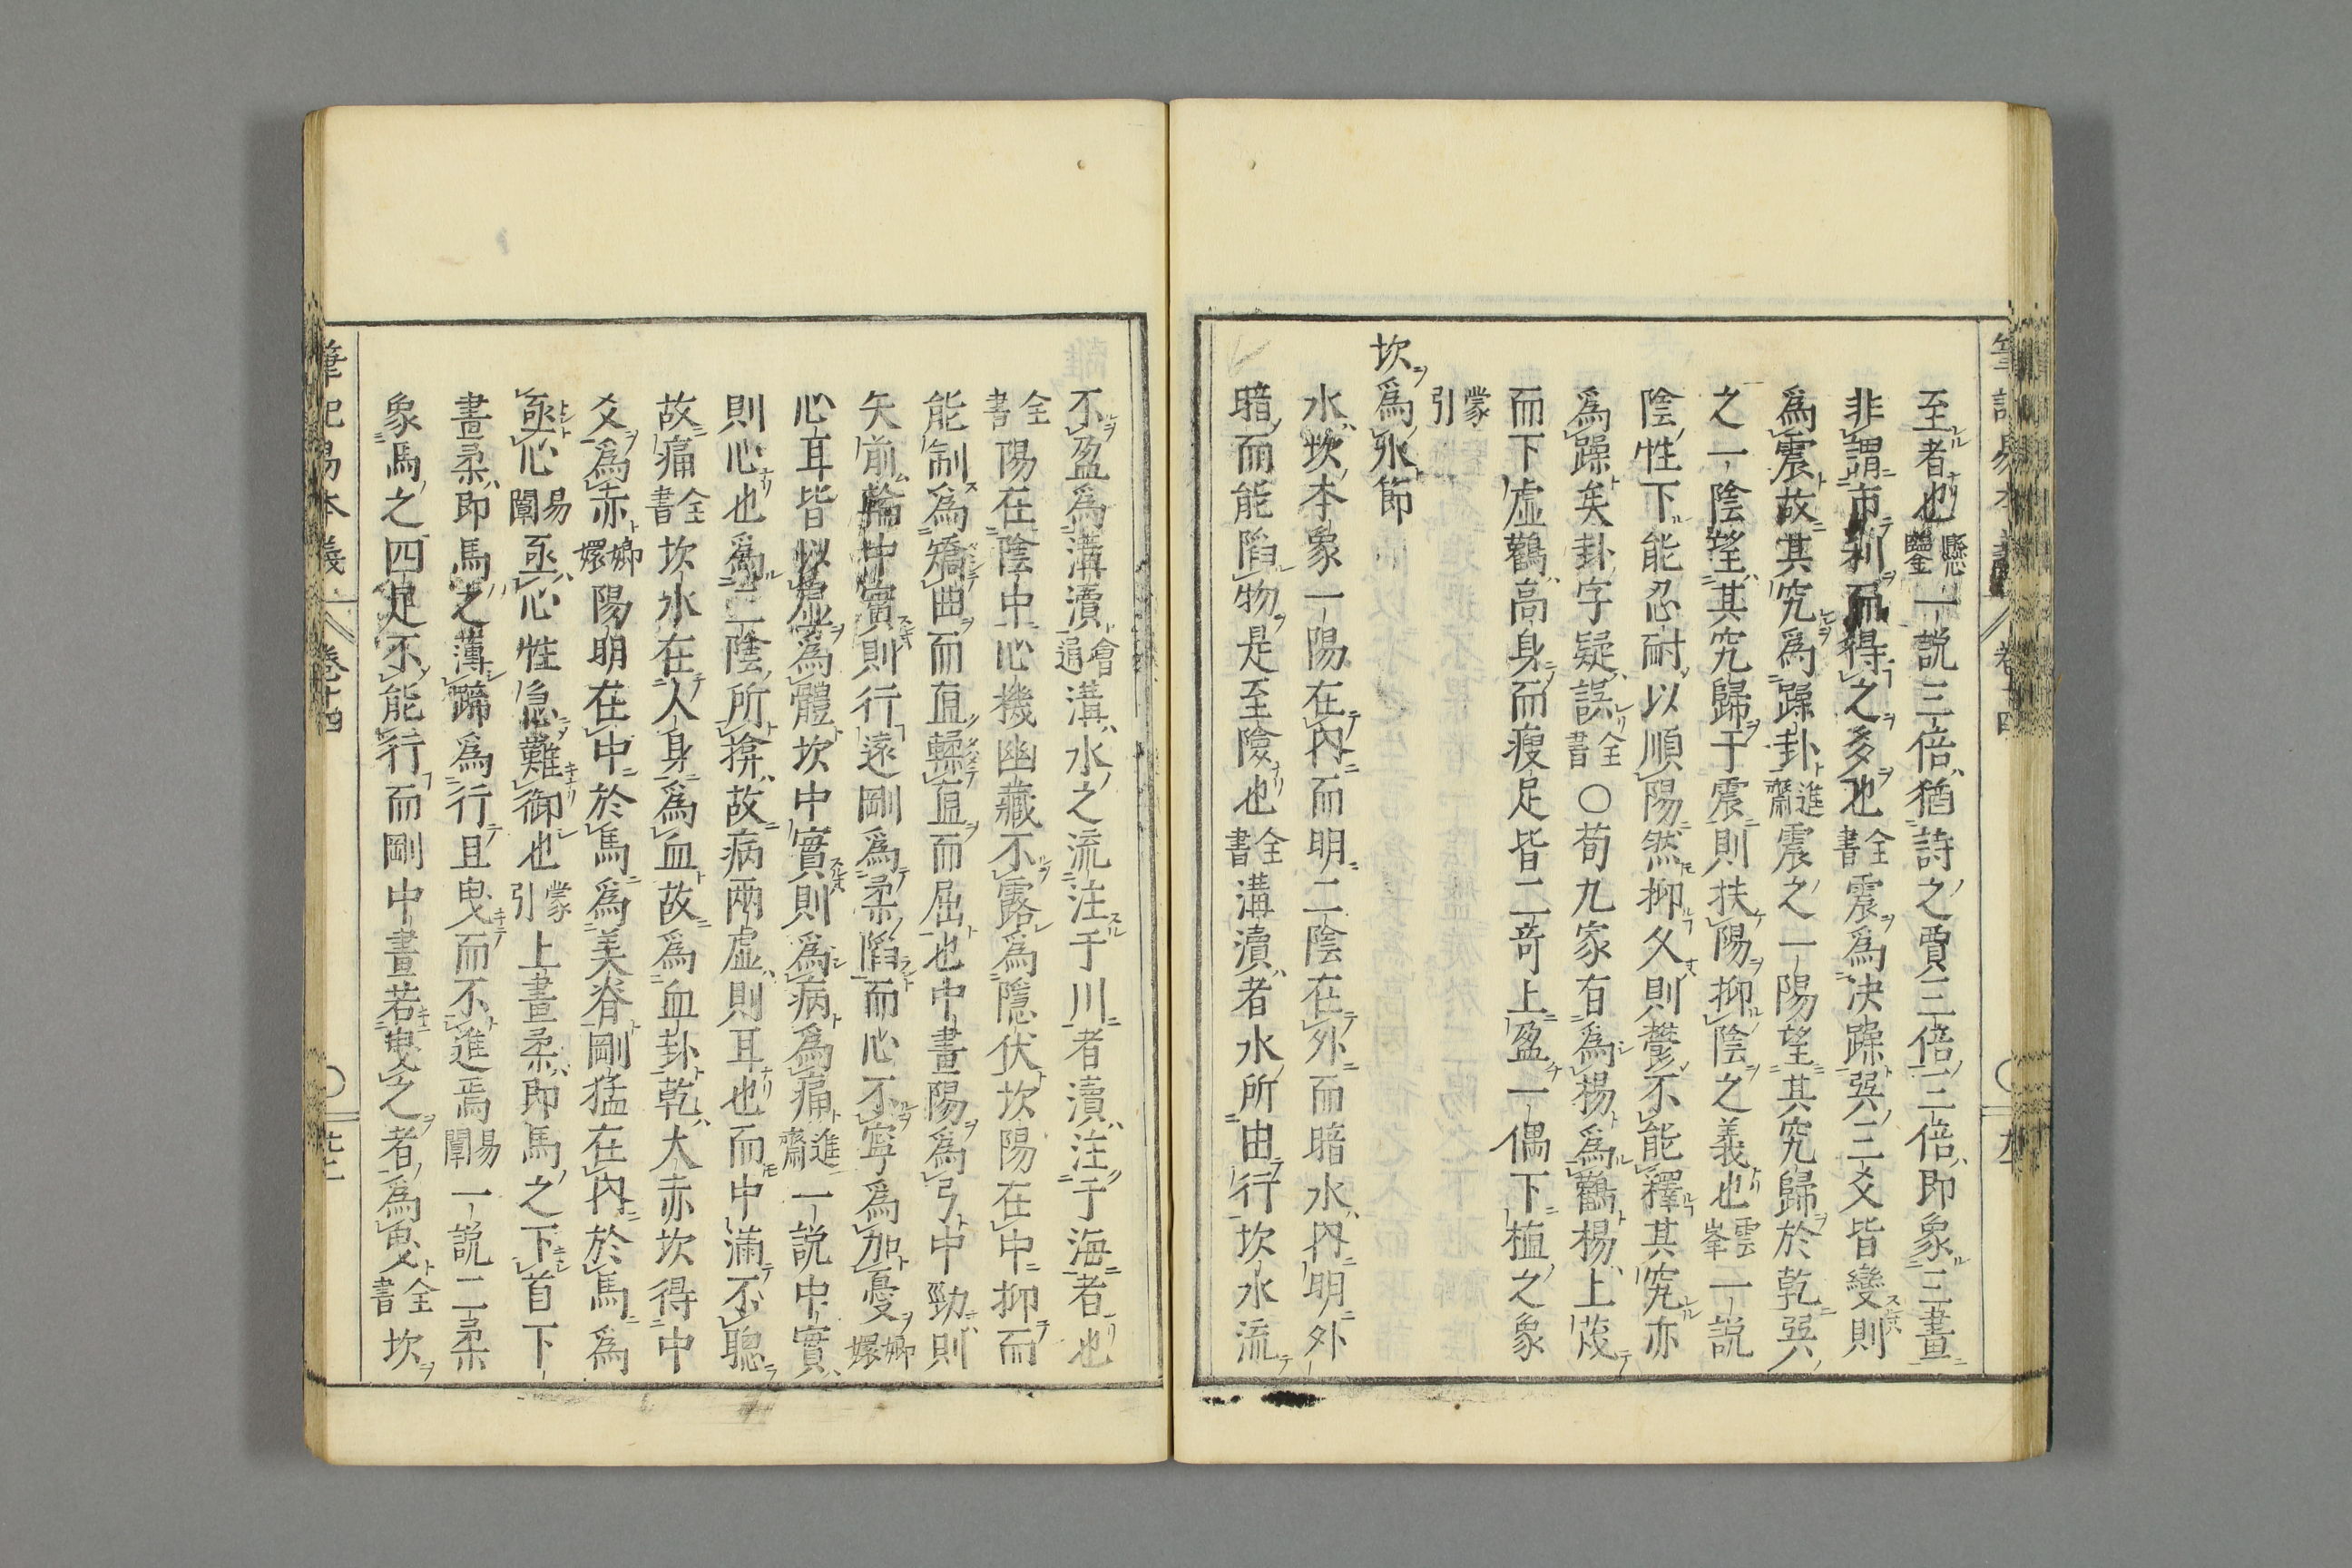 至者也懸鑒一說三倍猶詩之賈三倍三倍即象三畫
非謂市利而得之多也全書震爲決躁巽三爻皆變則
爲震故其究爲躁卦進齋震之一陽望其究歸於乾巽
之一陰望其究歸于震則扶陽抑陰之義也雲峯一說
陰性下能忍耐以順陽然抑久則鬱不能釋其究亦
爲躁矣卦字疑誤全書○荀九家有爲楊爲鸛楊上茂
而下虛鸛高身而瘦足皆二奇上盈一偶下植之象
蒙引
坎爲水節
水坎本象一陽在內而明二陰在外而暗水內明外
暗而能陷物是至險也全書溝瀆者水所由行坎水流
不盈爲溝瀆會通溝水之流注于川者瀆注于海者也
全書陽在陰中心機幽藏不露爲隱伏坎陽在中抑而
能制爲矯曲而直輮直而屈也中畫陽爲弓中勁則
矢前輪中實則行遠剛爲柔陷而心不寧爲加憂嫏嬛
心耳皆以虛爲體坎中實則爲病爲痛進齋一說中實
則心也爲二陰所揜故病兩虛則耳也而中滿不聰
故痛全書坎水在人身爲血故爲血卦乾大赤坎得中
爻爲赤嫏嬛陽明在中於馬爲美脊剛猛在內於馬爲
亟心易闡亟心性急難御也蒙引上畫柔即馬之下首下
畫柔即馬之薄蹄爲行且曳而不進焉易闡一說二柔
象馬之四足不能行而剛中畫若曳之者爲曳全書坎
筆記易本義 卷十四